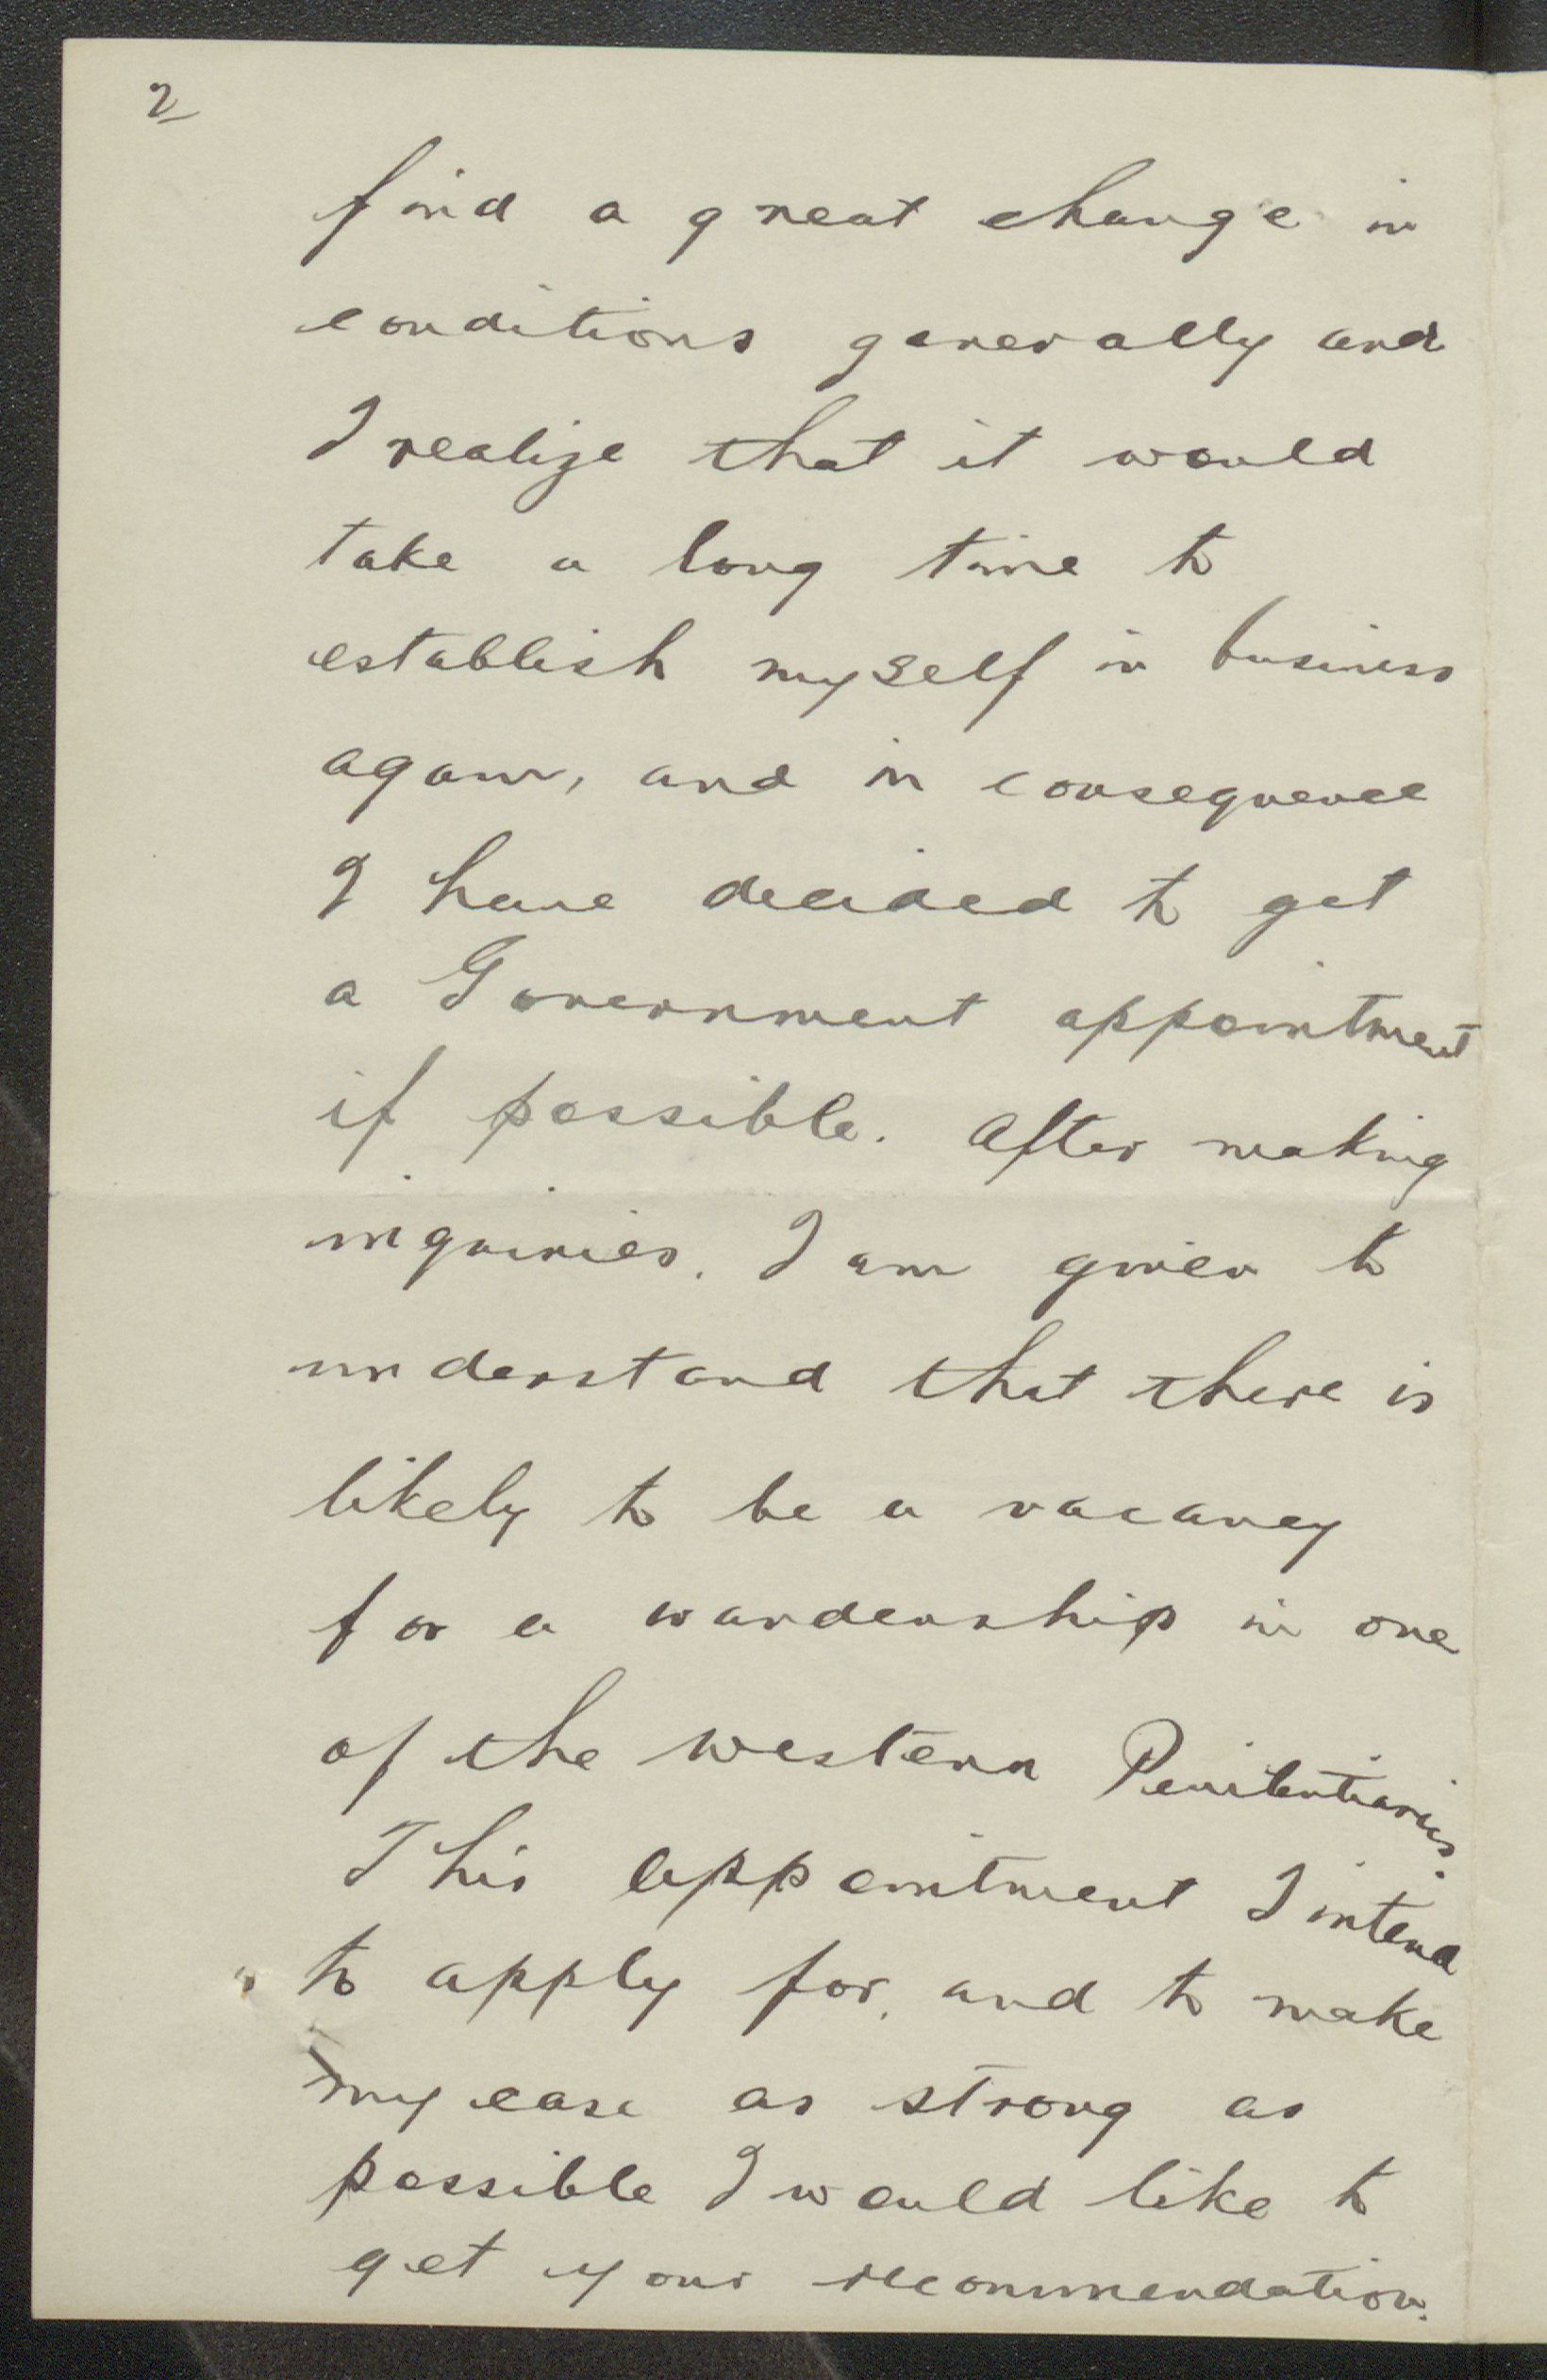 2
find a great change in
conditions generally and
I realize that it would
take a long time to
establish myself in business
again, and in consequence
I have decided to get
a Government appointment
if possible. After making
inquiries. I am given to
understand that there is
likely to be a vacancy
for a wardenship in one
of the western Penitentiaries.
This appointment I intend
to apply for, and to make
my case as strong as
possible I would like to
get your recommendation.